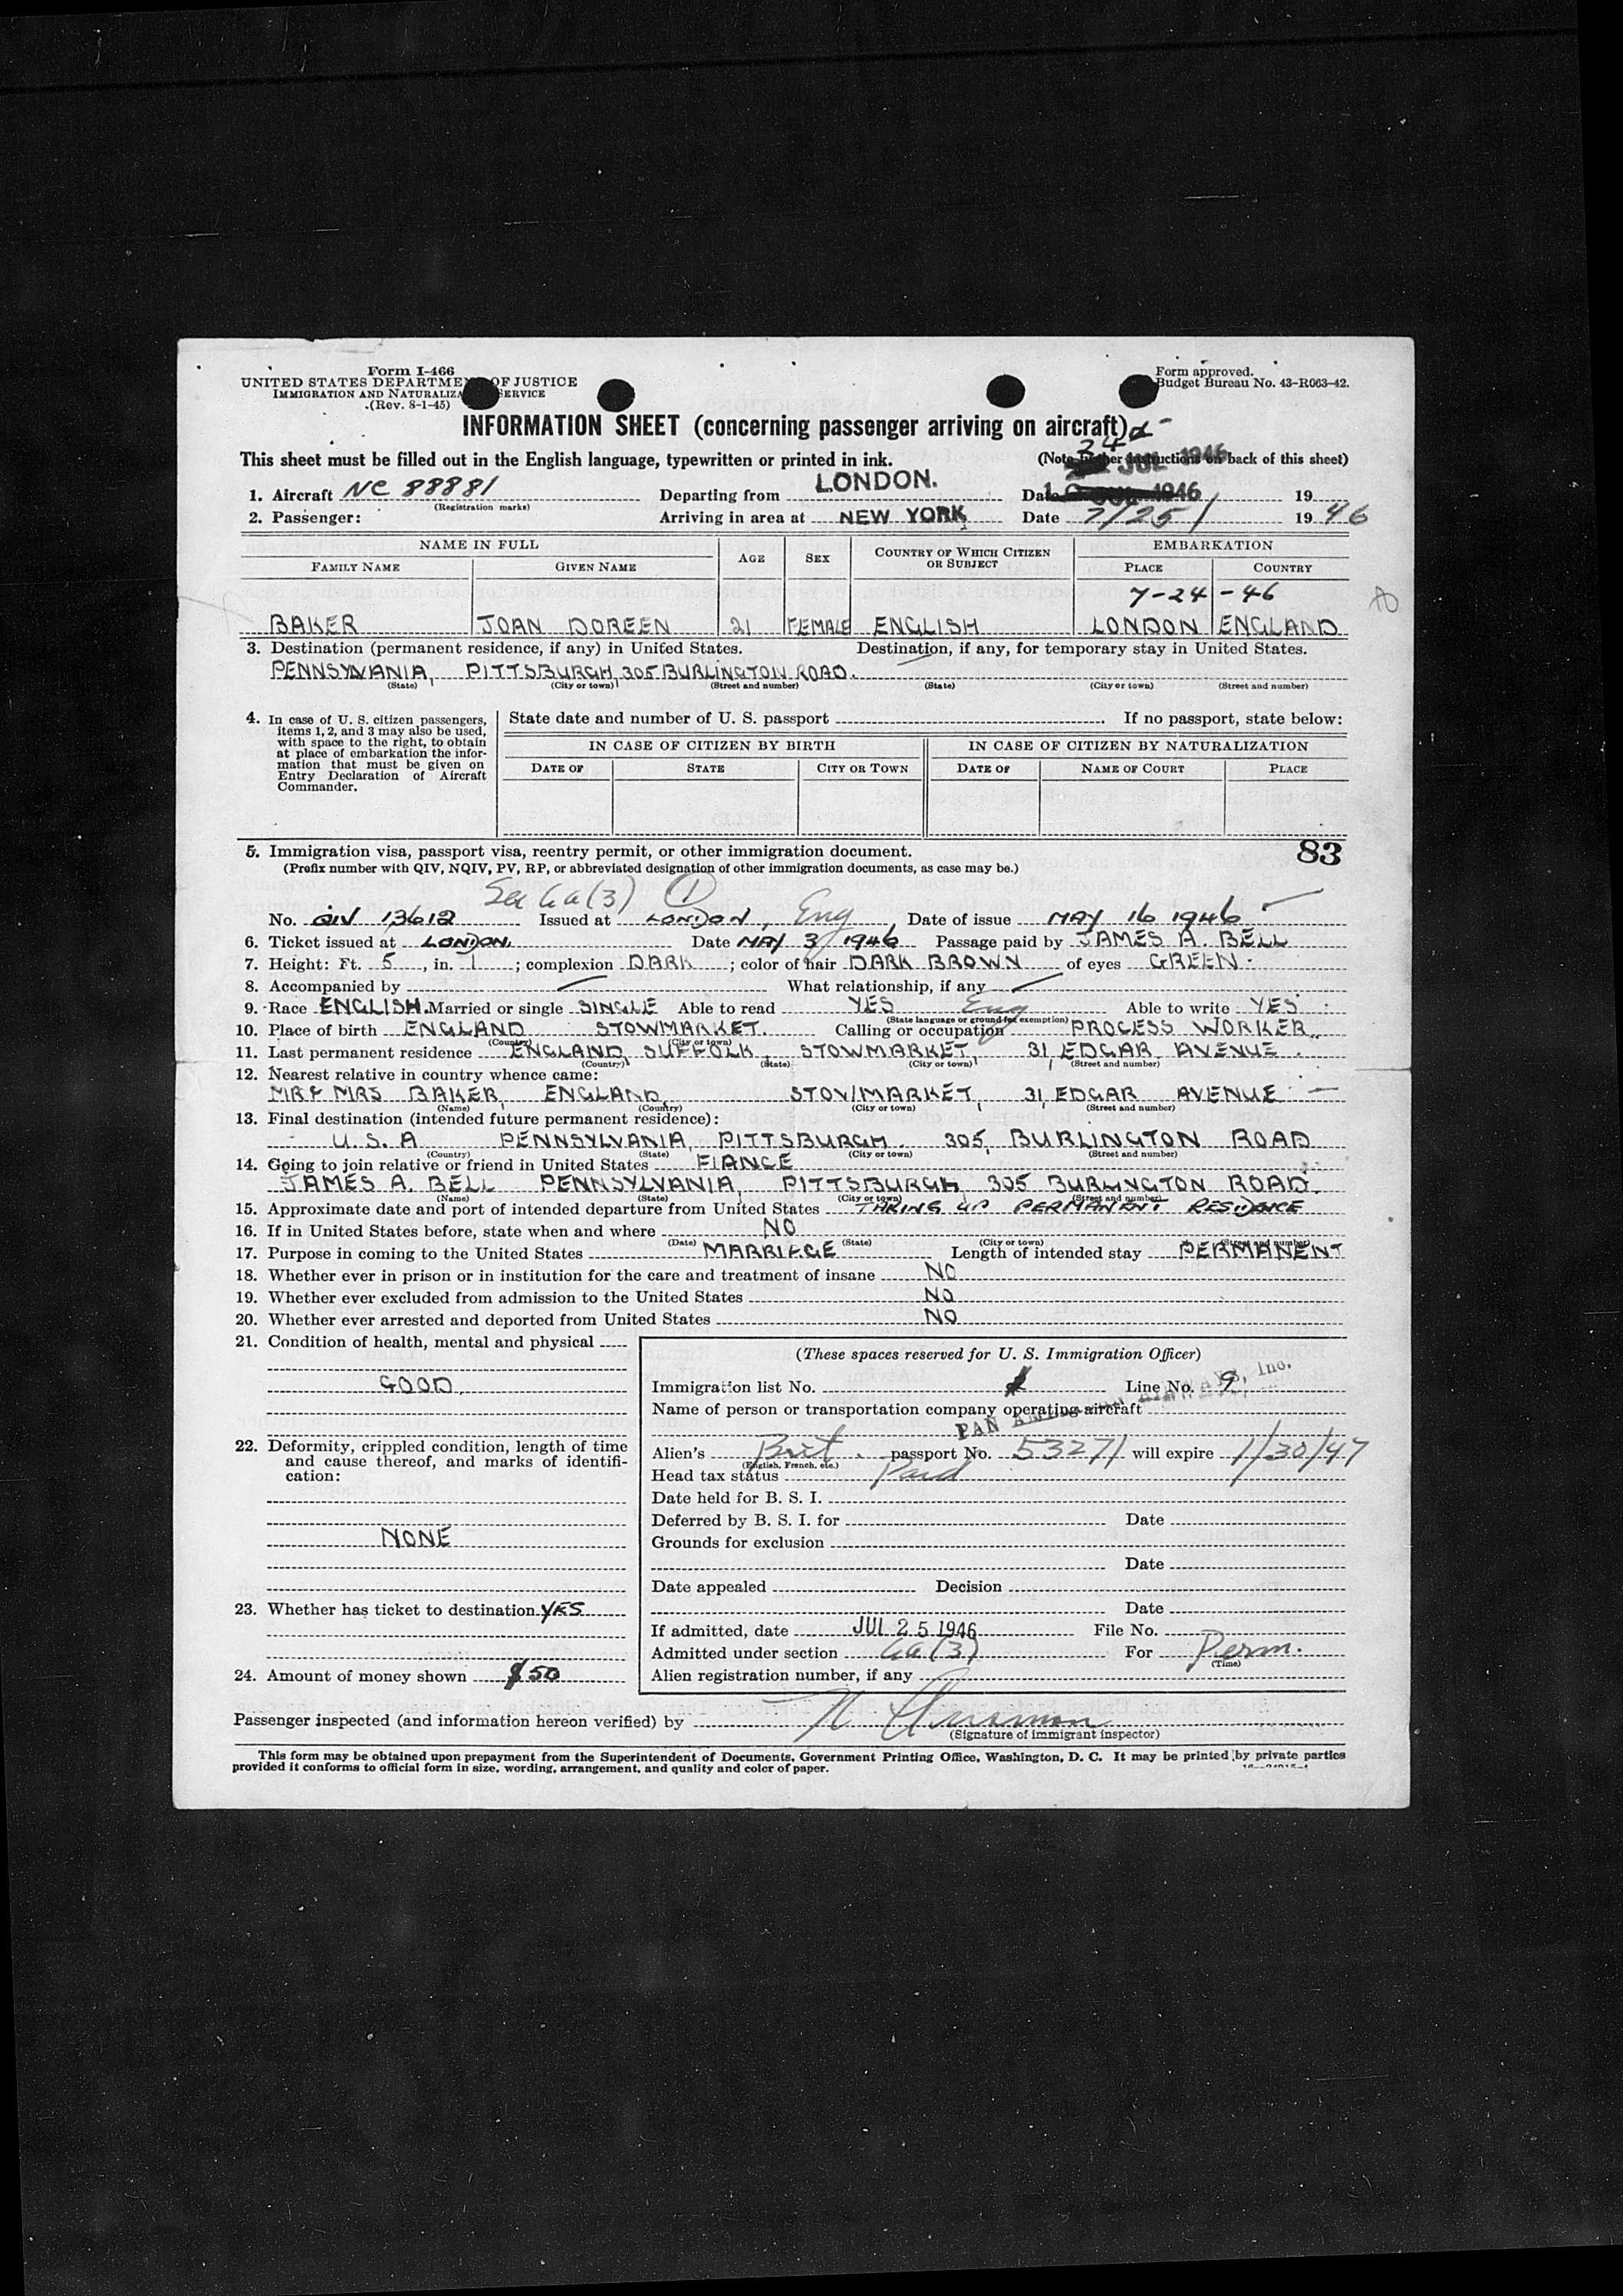 Form I-466
UNITED STATES DEPARTMENT OF JUSTICE
IMMIGRATION AND NATURALIZATION SERVICE
(Rev. 8-1-45)
Form approved.
Budget Bureau No. 43-R063-42.
INFORMATION SHEET (concerning passenger arriving on aircraft)
This sheet must be filled out in the English language, typewritten or printed in ink. (Note further instructions on back of this sheet)
24 JUL 1946
1. Aircraft NC 88881 (Registration marks) Departing from LONDON. Date 1946 19
2. Passenger: Arriving in area at NEW YORK Date 7/25/ 1946
NAME IN FULL AGE SEX COUNTRY OF WHICH CITIZEN OR SUBJECT EMBARKATION
FAMILY NAME GIVEN NAME PLACE COUNTRY
7-24-46
BAKER JOAN DOREEN 21 FEMALE ENGLISH LONDON ENGLAND
3. Destination (permanent residence, if any) in United States. Destination, if any, for temporary stay in United States.
PENNSYLVANIA, PITTSBURGH, 305 BURLINGTON ROAD.
(State) (City or town) (Street and number) (State) (City or town) (Street and number)
4. In case of U. S. citizen passengers, items 1, 2, and 3 may also be used, with space to the right, to obtain at place of embarkation the information that must be given on Entry Declaration of Aircraft Commander.
State date and number of U. S. passport . If no passport, state below:
IN CASE OF CITIZEN BY BIRTH IN CASE OF CITIZEN BY NATURALIZATION
DATE OF STATE CITY OR TOWN DATE OF NAME OF COURT PLACE
5. Immigration visa, passport visa, reentry permit, or other immigration document. 83
(Prefix number with QIV, NQIV, PV, RP, or abbreviated designation of other immigration documents, as case may be.)
Sec 6a(3) 1
No. QIV 13612 Issued at LONDON, Eng Date of issue MAY 16 1946
6. Ticket issued at LONDON. Date MAY 3 1946 Passage paid by JAMES A. BELL
7. Height: Ft. 5, in. 1; complexion DARK; color of hair DARK BROWN of eyes GREEN.
8. Accompanied by What relationship, if any
9. Race ENGLISH. Married or single SINGLE Able to read YES Eng Able to write YES
(State language or ground for exemption)
10. Place of birth ENGLAND STOWMARKET. Calling or occupation PROCESS WORKER.
(Country) (City or town)
11. Last permanent residence ENGLAND, SUFFOLK, STOWMARKET, 31, EDGAR AVENUE.
(Country) (State) (City or town) (Street and number)
12. Nearest relative in country whence came:
MR & MRS BAKER, ENGLAND, STOWMARKET, 31, EDGAR AVENUE
(Name) (Country) (City or town) (Street and number)
13. Final destination (intended future permanent residence):
U.S.A PENNSYLVANIA, PITTSBURGH. 305, BURLINGTON ROAD
(Country) (State) (City or town) (Street and number)
14. Going to join relative or friend in United States FIANCE
JAMES A. BELL PENNSYLVANIA, PITTSBURGH, 305 BURLINGTON ROAD.
(Name) (State) (City or town) (Street and number)
15. Approximate date and port of intended departure from United States TAKING UP PERMANENT RESIDANCE
16. If in United States before, state when and where NO
(Date) (State) (City or town) (Street and number)
17. Purpose in coming to the United States MARRIEGE Length of intended stay PERMANENT
18. Whether ever in prison or in institution for the care and treatment of insane NO
19. Whether ever excluded from admission to the United States NO
20. Whether ever arrested and deported from United States NO
21. Condition of health, mental and physical
GOOD
22. Deformity, crippled condition, length of time and cause thereof, and marks of identification:
NONE
23. Whether has ticket to destination YES
24. Amount of money shown $50
(These spaces reserved for U. S. Immigration Officer)
Immigration list No. Line No. 9
Name of person or transportation company operating aircraft PAN AMERICAN AIRWAYS, Inc.
Alien's Brit. passport No. 53271 will expire 1/30/47
(English, French, etc.)
Head tax status Paid
Date held for B. S. I.
Deferred by B. S. I. for Date
Grounds for exclusion
Date
Date appealed Decision
Date
If admitted, date JUL 25 1946 File No.
Admitted under section 6a(3) For Perm.
(Time)
Alien registration number, if any
Passenger inspected (and information hereon verified) by
(Signature of immigrant inspector)
This form may be obtained upon prepayment from the Superintendent of Documents, Government Printing Office, Washington, D. C. It may be printed by private parties
provided it conforms to official form in size, wording, arrangement, and quality and color of paper.